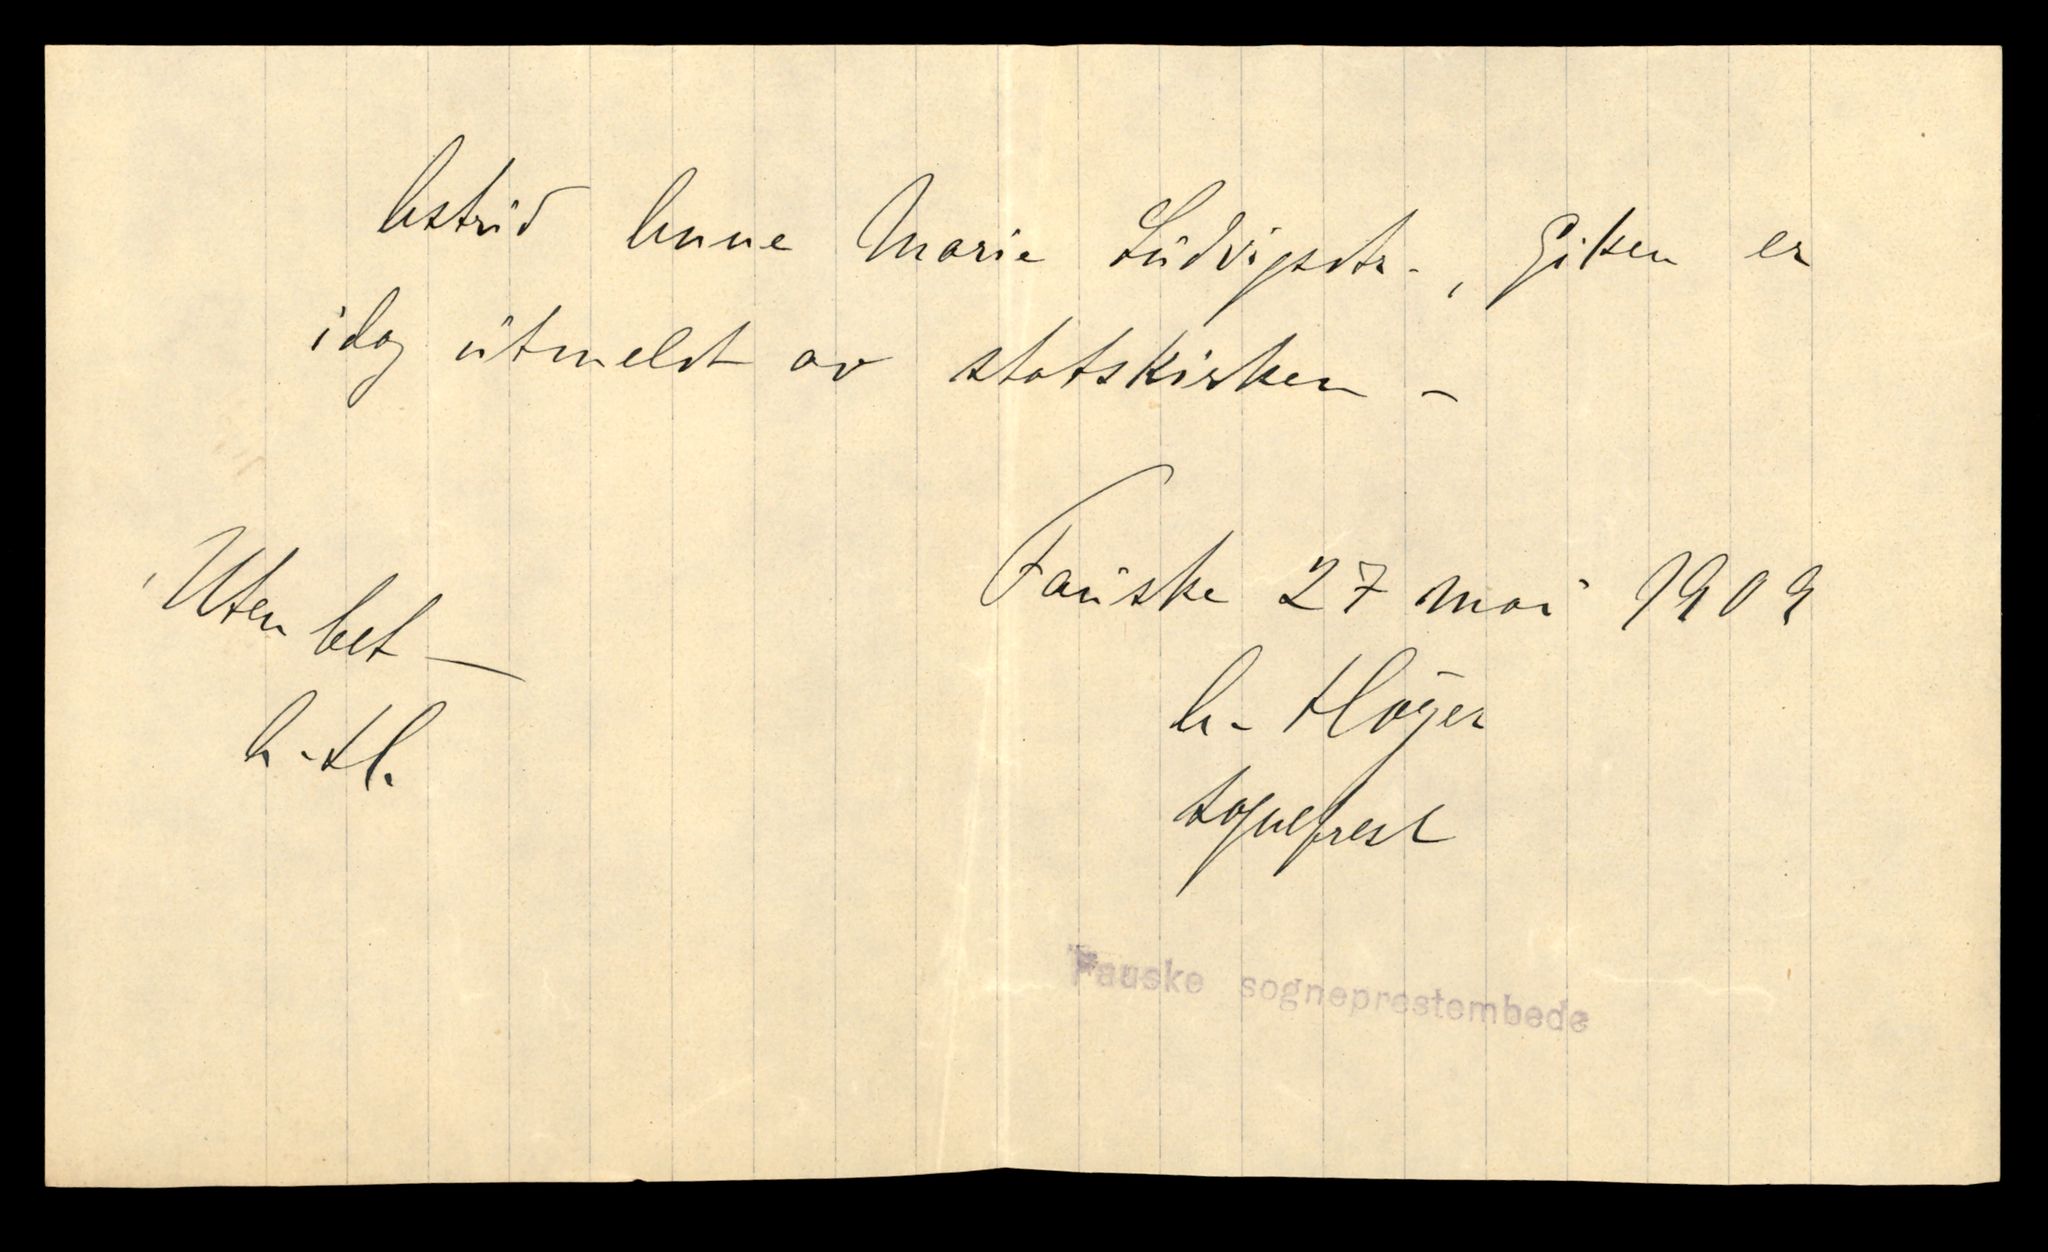 Astrid Anne Marie Ludvigsdtr., Giken er
idag utmeldt av statskirken –
Fauske 27 mai 1909
Uten bet –
A. Höyer
A. H.
sogneprest
Fauske sogneprestembede